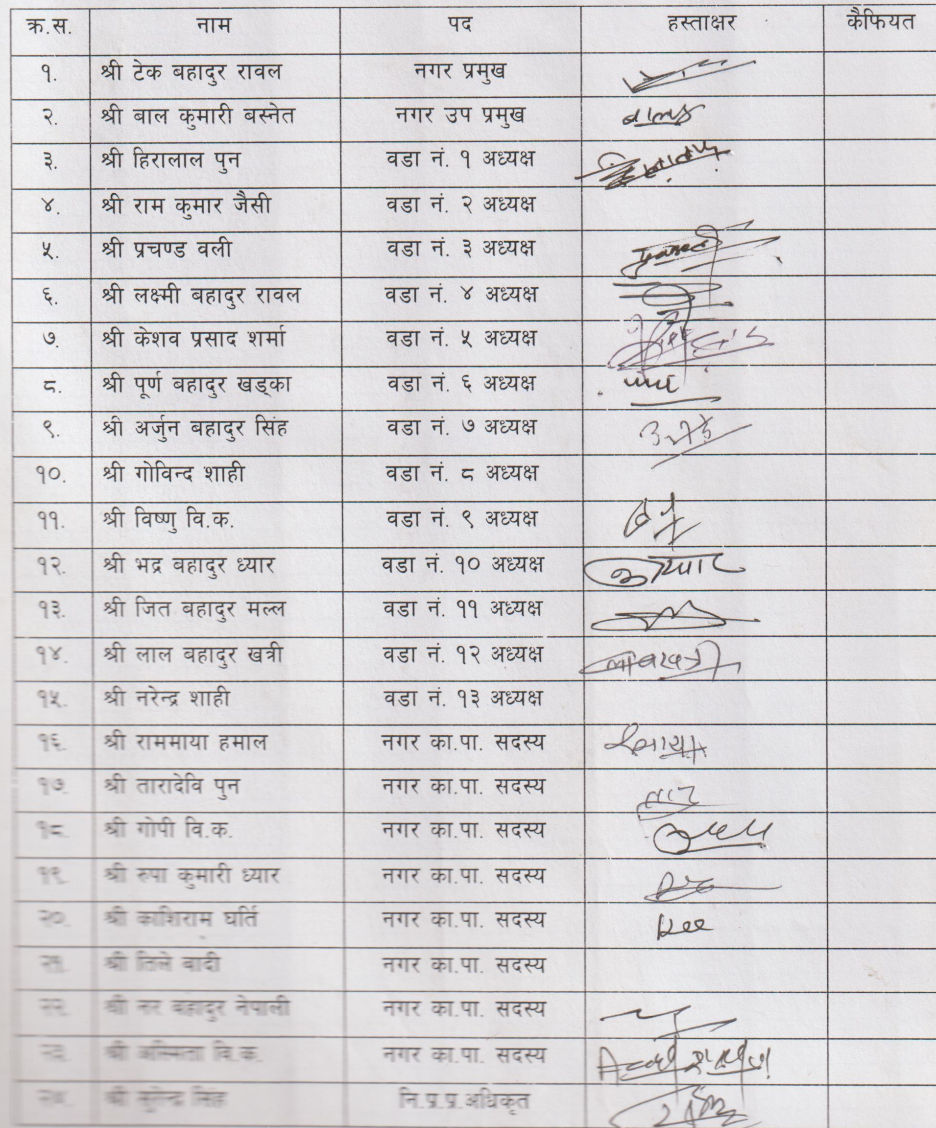 क्र.स. नाम पद हस्ताक्षर कैफियत
१. श्री टेक बहादुर रावल नगर प्रमुख
२. श्री बाल कुमारी बस्नेत नगर उप प्रमुख
३. श्री हिरालाल पुन वडा नं. १ अध्यक्ष
४. श्री राम कुमार जैसी वडा नं. २ अध्यक्ष
५. श्री प्रचण्ड वली वडा नं. ३ अध्यक्ष
६. श्री लक्ष्मी बहादुर रावल वडा नं. ४ अध्यक्ष
७. श्री केशव प्रसाद शर्मा वडा नं. ५ अध्यक्ष
८. श्री पूर्ण बहादुर खड्का वडा नं. ६ अध्यक्ष
९. श्री अर्जुन बहादुर सिंह वडा नं. ७ अध्यक्ष
१०. श्री गोविन्द शाही वडा नं. ८ अध्यक्ष
११. श्री विष्णु वि.क. वडा नं. ९ अध्यक्ष
१२. श्री भद्र बहादुर ध्यार वडा नं. १० अध्यक्ष
१३. श्री जित बहादुर मल्ल वडा नं. ११ अध्यक्ष
१४. श्री लाल बहादुर खत्री वडा नं. १२ अध्यक्ष
१५. श्री नरेन्द्र शाही वडा नं. १३ अध्यक्ष
१६. श्री राममाया हमाल नगर का.पा. सदस्य
१७. श्री तारादेवि पुन नगर का.पा. सदस्य
१८. श्री गोपी वि.क. नगर का.पा. सदस्य
१९. श्री रुपा कुमारी ध्यार नगर का.पा. सदस्य
२०. श्री काशिराम घर्ति नगर का.पा. सदस्य
२१. श्री तिले वादी नगर का.पा. सदस्य
२२. श्री नर बहादुर नेपाली नगर का.पा. सदस्य
२३. श्री अस्मिता वि.क. नगर का.पा. सदस्य
२४. श्री सुरेन्द्र सिंह नि.प्र.प्र.अधिकृत